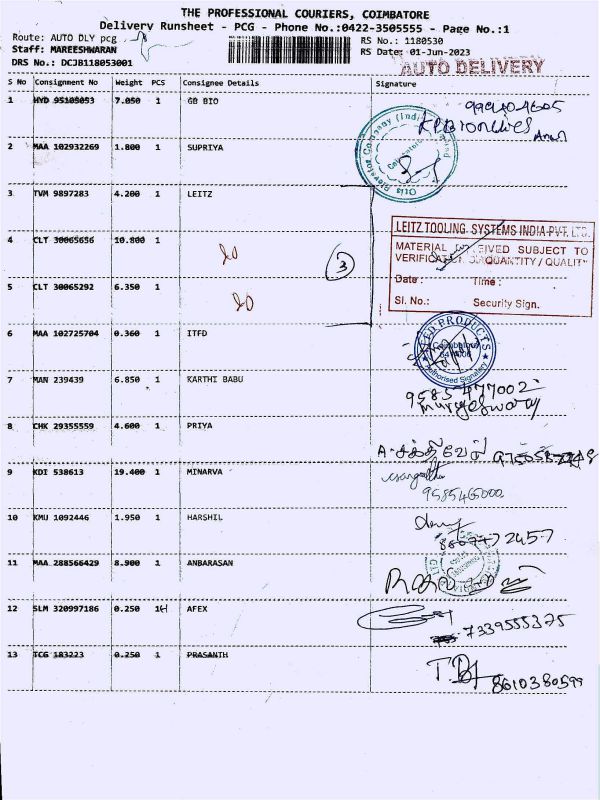 THE PROFESSIONAL COURIERS, COIMBATORE
Delivery Runsheet - PCG - Phone No.:0422-3505555 - Page No.:1
Route: AUTO DLY pcg
RS No.: 1180530
Staff: MAREESHWARAN
RS Date: 01-Jun-2023
DRS No.: DCJB118053001
AUTO DELIVERY
S No Consignment No Weight PCS Consignee Details Signature
1 HYD 95105053 7.050 1 GB BIO
2 MAA 102932269 1.800 1 SUPRIYA
Otis Elevator Company (India) Limited
3 TVM 9897283 4.200 1 LEITZ
LEITZ TOOLING SYSTEMS INDIA PVT. LTD.
MATERIAL RECEIVED SUBJECT TO
QUANTITY / QUALITY
Date : Time :
Sl. No.: Security Sign.
4 CLT 30065656 10.800 1 do
3
5 CLT 30065292 6.350 1 do
6 MAA 102725704 0.360 1 ITFD
PRODUCTS
Authorised Signatory
7 MAN 239439 6.850 1 KARTHI BABU
9585477002
8 CHK 29355559 4.600 1 PRIYA
A. சக்திவேல்
9 KDI 538613 19.400 1 MINARVA
9585465000
10 KMU 1092446 1.950 1 HARSHIL
8607722457
11 MAA 288566429 8.900 1 ANBARASAN
12 SLM 320997186 0.250 1 AFEX
7339555375
13 TCG 183223 0.250 1 PRASANTH
8610380599